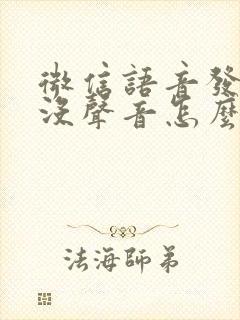 微信語音發
沒聲音怎麼
法海師弟